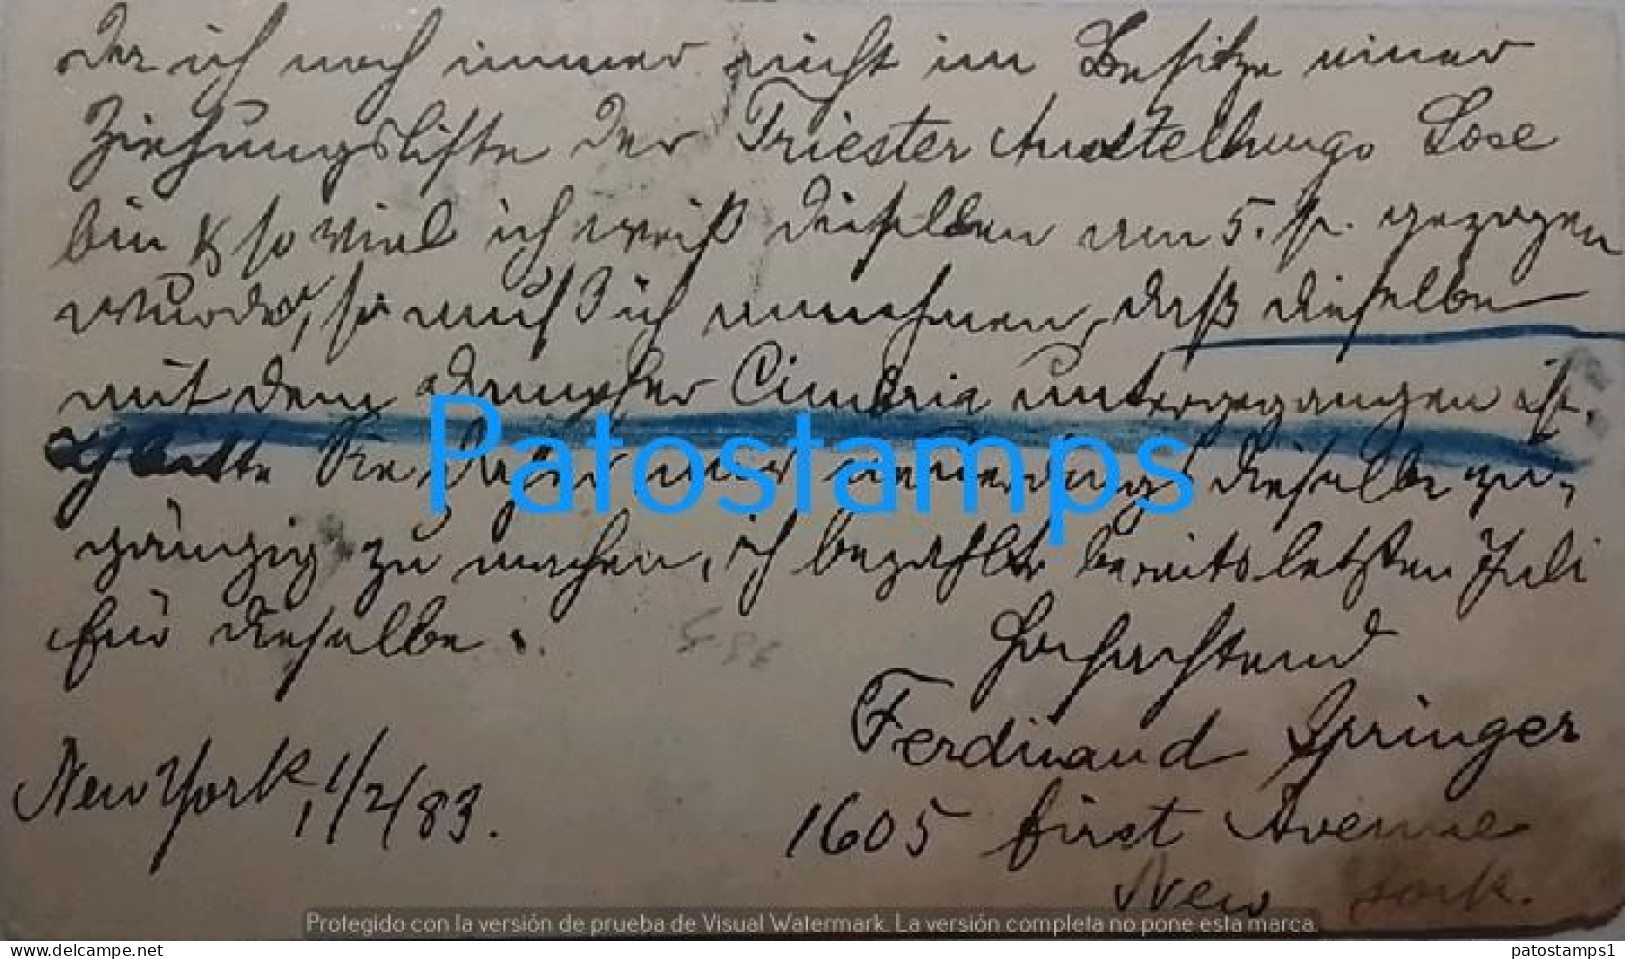 Da ich noch immer nicht im Besitze einer
Ziehungsliste der Triester Ausstellungs Lose
bin & so viel ich weiß dieselben am 5. gezogen
wurde, so muß ich annehmen, daß dieselbe
mit dem Dampfer Cimbria untergegangen ist.
bitte Sie daher mir neuerdings dieselbe zu-
gängig zu machen, ich bezahlte bereits letzten Juli
für dieselbe.
Hochachtend
Ferdinand Springer
New York, 1/2/83.
1605 first Avenue
New York.
Patostamps
Protegido con la versión de prueba de Visual Watermark. La versión completa no pone esta marca.
www.delcampe.net
patostamps1